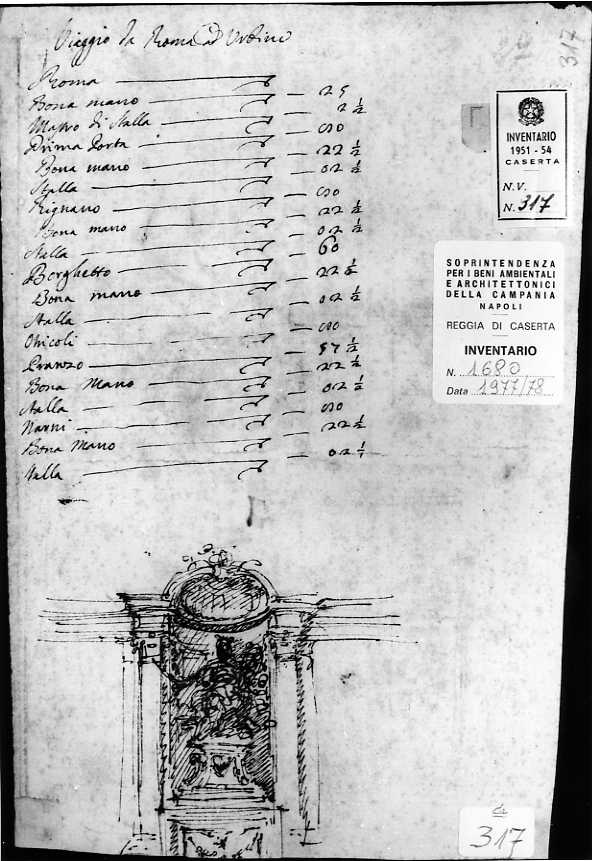 Viaggio da Roma ad Urbino
Roma
Bona mano 25
Mastro di stalla 2 1/2
Prima Porta
Bona mano 22 1/2
Stalla 02 1/2
Rignano
Bona mano 22 1/2
Stalla 02 1/2
Borghetto 60
Bona mano 22 1/2
Stalla 02 1/2
Otricoli
Pranzo 57 1/2
Bona Mano 22 1/2
Stalla 02 1/2
Narni
Bona Mano 22 1/2
Stalla 02 1/2
317
INVENTARIO
1951 - 54
CASERTA
N.V.
N. 317
SOPRINTENDENZA
PER I BENI AMBIENTALI
E ARCHITETTONICI
DELLA CAMPANIA
NAPOLI
REGGIA DI CASERTA
INVENTARIO
N. 1680
Data 1977/78
317